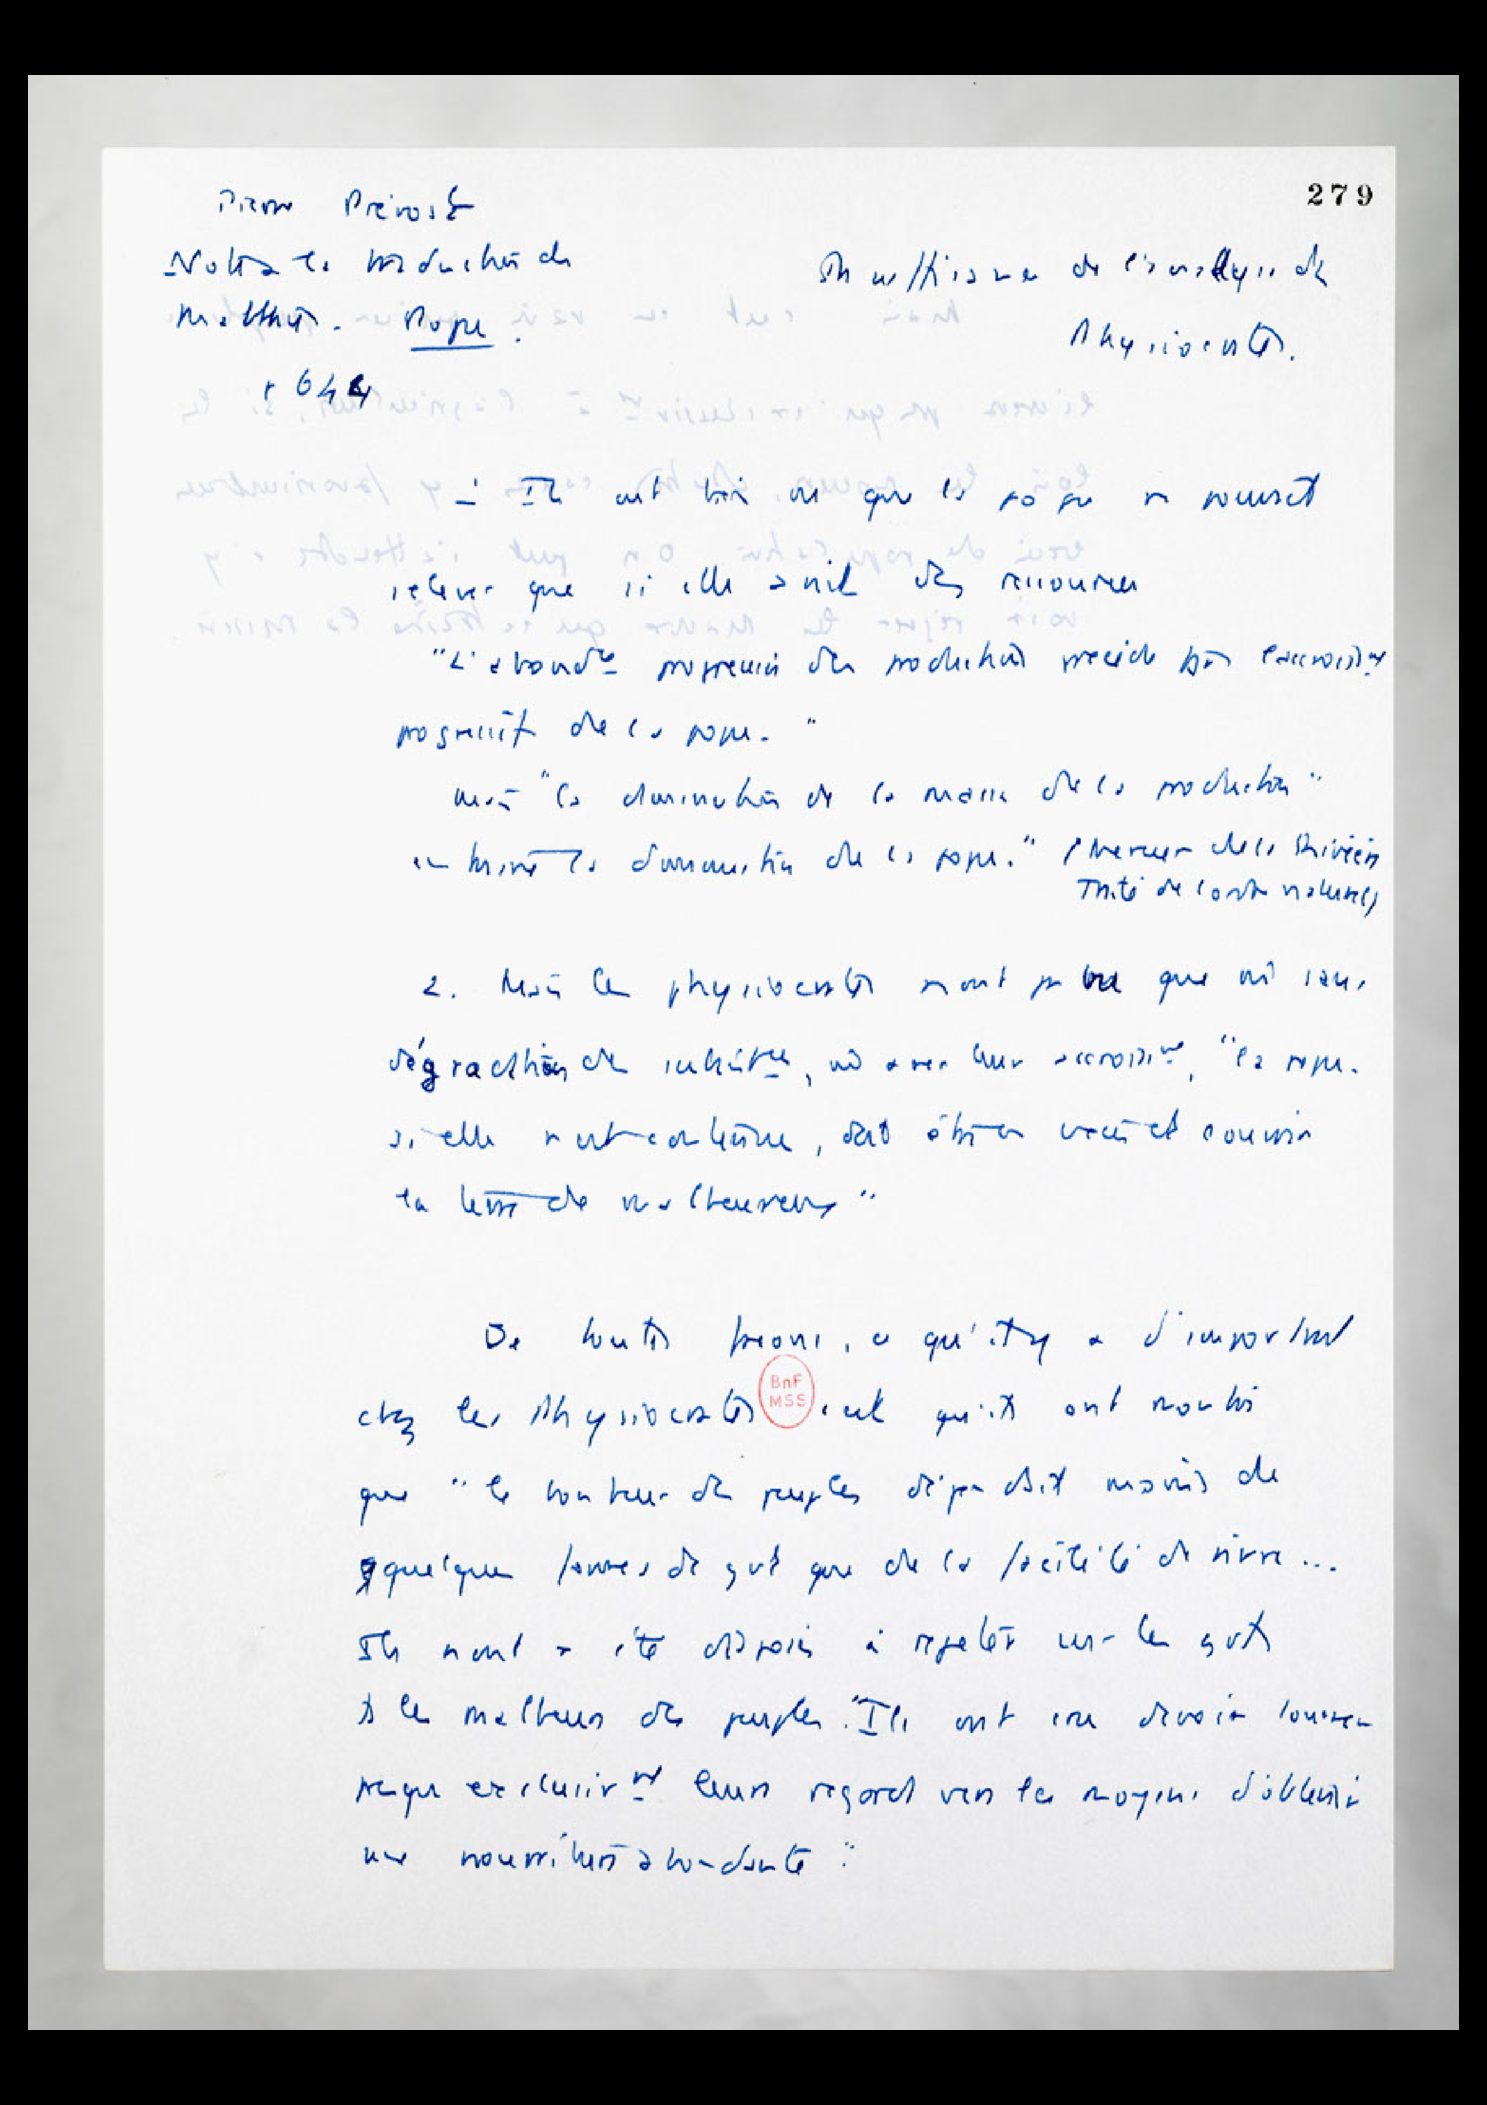 279
Pierre Prévost
Note à la traduction de
Malthus. Popu.
p 644
Insuffisance de l'analyse des
Physiocrates.
1 Ils ont bien vu que la popu ne pouvait
relever que si elle avait des ressources
"L'abondce progressive des productions précède tjs l'accroisst
progressif de la popu."
mais "la diminution de la masse de la production"
entraîne la diminution de la popu." (Mercier de la Rivière
Traité de l'ordre naturel)
2. Mais les physiocrates n'ont pas vu que mê sans
dégradation des subsistces, mê avec leur accroisst, "la popu.
si elle n'est contenue, doit être en excès et couvrir
la terre de malheureux"
De toutes façons, ce qu'il y a d'important
chez les Physiocrates c'est qu'ils ont montré
que "le bonheur des peuples dépendait moins de
quelques formes de gvt que de la facilité de vivre...
Ils n'ont été disposés à rejeter sur les gvts
ts les malheurs des peuples. "Ils ont cru devoir tourner
presque exclusivmt leurs regards vers les moyens d'obtenir
une nourriture abondante".
BnF
MSS